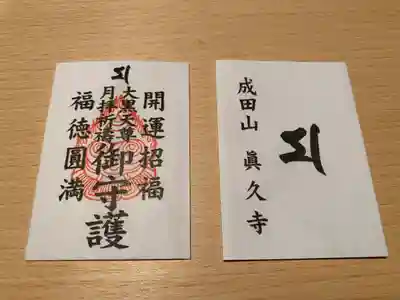 開運招福
大黒天尊
月拝祈祷
御守護
福徳圓満
成田山 眞久寺